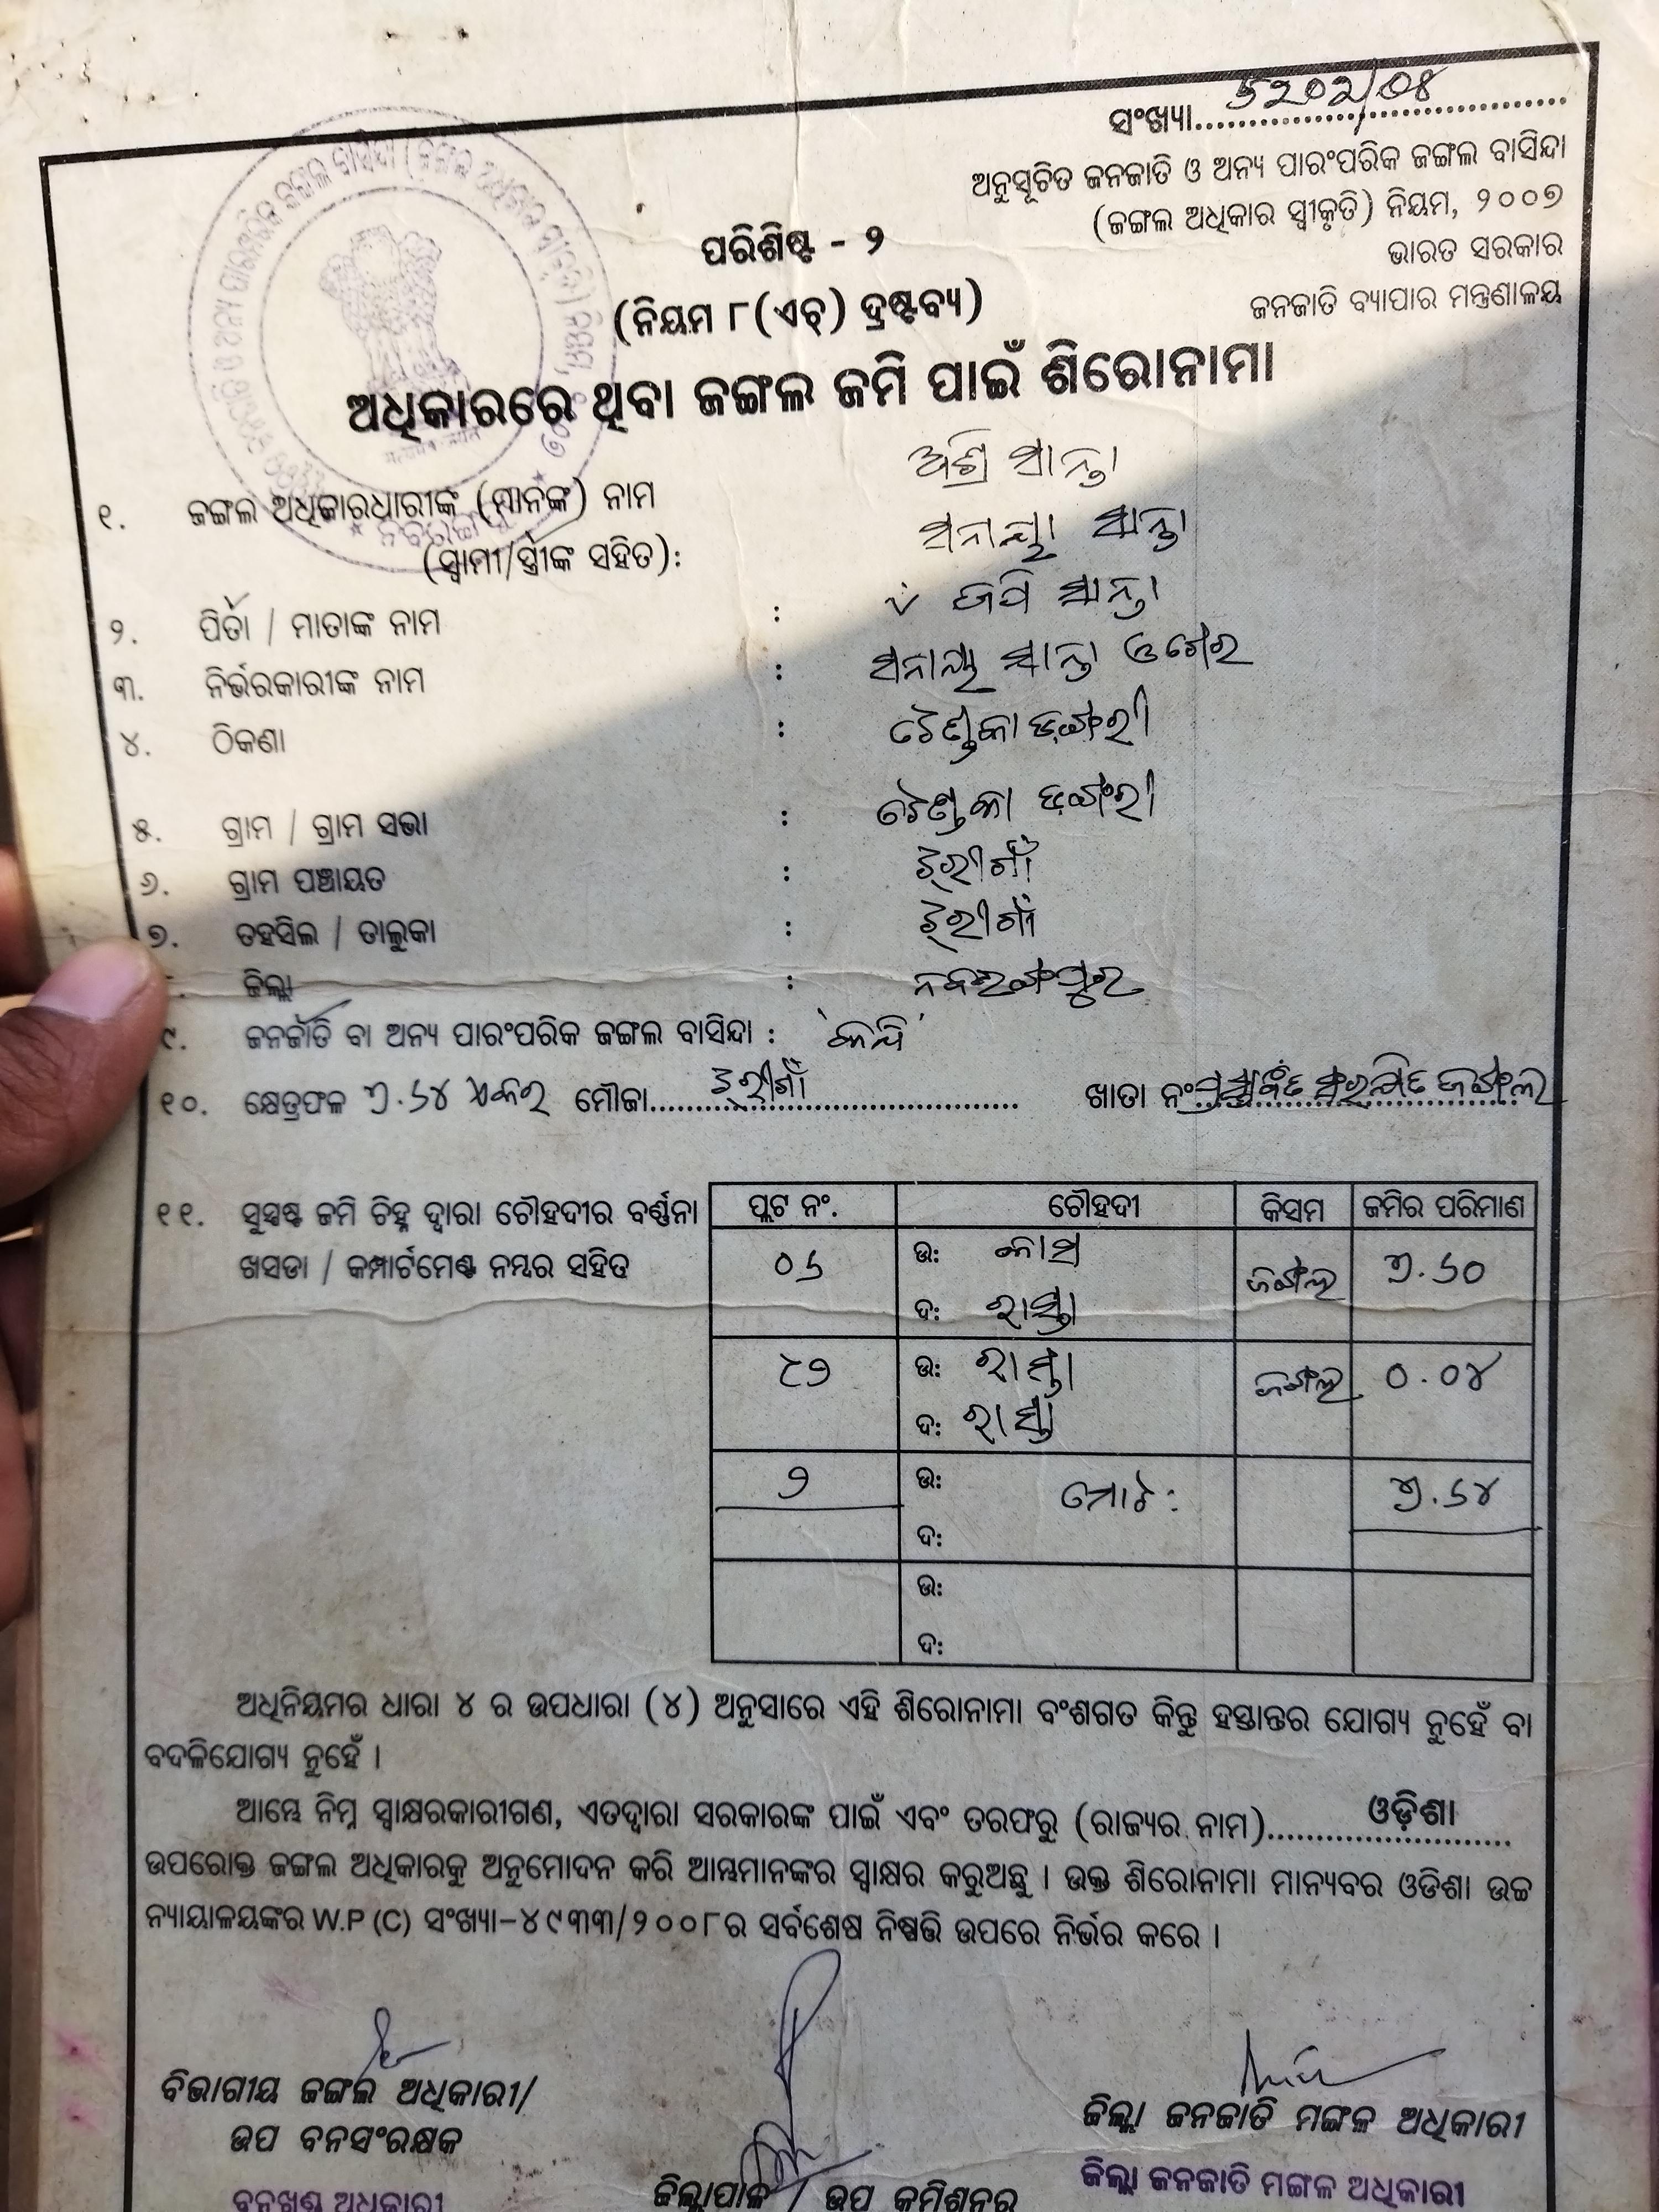 ସଂଖ୍ୟା ୬୨୦୨/୦୪
ଅନୁସୂଚିତ ଜନଜାତି ଓ ଅନ୍ୟ ପାରଂପରିକ ଜଙ୍ଗଲ ବାସିନ୍ଦା
(ଜଙ୍ଗଲ ଅଧିକାର ସ୍ୱୀକୃତି) ନିୟମ, ୨୦୦୭
ଭାରତ ସରକାର
ଜନଜାତି ବ୍ୟାପାର ମନ୍ତ୍ରଣାଳୟ
ପରିଶିଷ୍ଟ - ୨
(ନିୟମ ୮(ଏଚ୍) ଦ୍ରଷ୍ଟବ୍ୟ)
ଅଧିକାରରେ ଥିବା ଜଙ୍ଗଲ ଜମି ପାଇଁ ଶିରୋନାମା
୧. ଜଙ୍ଗଲ ଅଧିକାରଧାରୀଙ୍କ (ମାନଙ୍କ) ନାମ ସାନ୍ତା
(ସ୍ୱାମୀ/ସ୍ତ୍ରୀଙ୍କ ସହିତ): ସାନ୍ତା
୨. ପିତା / ମାତାଙ୍କ ନାମ : ସାନ୍ତା
୩. ନିର୍ଭରକାରୀଙ୍କ ନାମ : ସାନ୍ତା
୪. ଠିକଣା :
୫. ଗ୍ରାମ / ଗ୍ରାମ ସଭା :
୬. ଗ୍ରାମ ପଞ୍ଚାୟତ : ଝରୀଗାଁ
୭. ତହସିଲ / ତାଲୁକା : ଝରୀଗାଁ
ଜିଲ୍ଲା : ନବରଙ୍ଗପୁର
୯. ଜନଜାତି ବା ଅନ୍ୟ ପାରଂପରିକ ଜଙ୍ଗଲ ବାସିନ୍ଦା :
୧୦. କ୍ଷେତ୍ରଫଳ ୩.୬୪ ଏକର ମୌଜା ଝରୀଗାଁ ଖାତା ନଂ ପ୍ରସ୍ତାବିତ ସଂରକ୍ଷିତ ଜଙ୍ଗଲ
୧୧. ସୁସ୍ପଷ୍ଟ ଜମି ଚିହ୍ନ ଦ୍ୱାରା ଚୌହଦୀର ବର୍ଣ୍ଣନା
ଖସଡା / କମ୍ପାର୍ଟମେଣ୍ଟ ନମ୍ବର ସହିତ
ପ୍ଲଟ ନଂ. ଚୌହଦୀ କିସମ ଜମିର ପରିମାଣ
୦୬ ଉଃ ଜଙ୍ଗଲ ୩.୬୦
ଦଃ ରାସ୍ତା
୯୭ ଉଃ ରାସ୍ତା ଜଙ୍ଗଲ ୦.୦୪
ଦଃ ରାସ୍ତା
୨ ଉଃ ମୋଟ: ୩.୬୪
ଦଃ
ଉଃ
ଦଃ
ଅଧିନିୟମର ଧାରା ୪ ର ଉପଧାରା (୪) ଅନୁସାରେ ଏହି ଶିରୋନାମା ବଂଶଗତ କିନ୍ତୁ ହସ୍ତାନ୍ତର ଯୋଗ୍ୟ ନୁହେଁ ବା
ବଦଳିଯୋଗ୍ୟ ନୁହେଁ ।
ଆମ୍ଭେ ନିମ୍ନ ସ୍ୱାକ୍ଷରକାରୀଗଣ, ଏତଦ୍ଦ୍ୱାରା ସରକାରଙ୍କ ପାଇଁ ଏବଂ ତରଫରୁ (ରାଜ୍ୟର ନାମ) ଓଡ଼ିଶା
ଉପରୋକ୍ତ ଜଙ୍ଗଲ ଅଧିକାରକୁ ଅନୁମୋଦନ କରି ଆମ୍ଭମାନଙ୍କର ସ୍ୱାକ୍ଷର କରୁଅଛୁ । ଉକ୍ତ ଶିରୋନାମା ମାନ୍ୟବର ଓଡିଶା ଉଚ୍ଚ
ନ୍ୟାୟାଳୟଙ୍କର W.P (C) ସଂଖ୍ୟା-୪୯୩୩/୨୦୦୮ର ସର୍ବଶେଷ ନିଷ୍ପତ୍ତି ଉପରେ ନିର୍ଭର କରେ ।
ବିଭାଗୀୟ ଜଙ୍ଗଲ ଅଧିକାରୀ/
ଉପ ବନସଂରକ୍ଷକ
ବନଖଣ୍ଡ ଅଧିକାରୀ
ଜିଲ୍ଲାପାଳ / ଉପ କମିଶନର
ଜିଲ୍ଲା ଜନଜାତି ମଙ୍ଗଳ ଅଧିକାରୀ
ଜିଲ୍ଲା ଜନଜାତି ମଙ୍ଗଳ ଅଧିକାରୀ